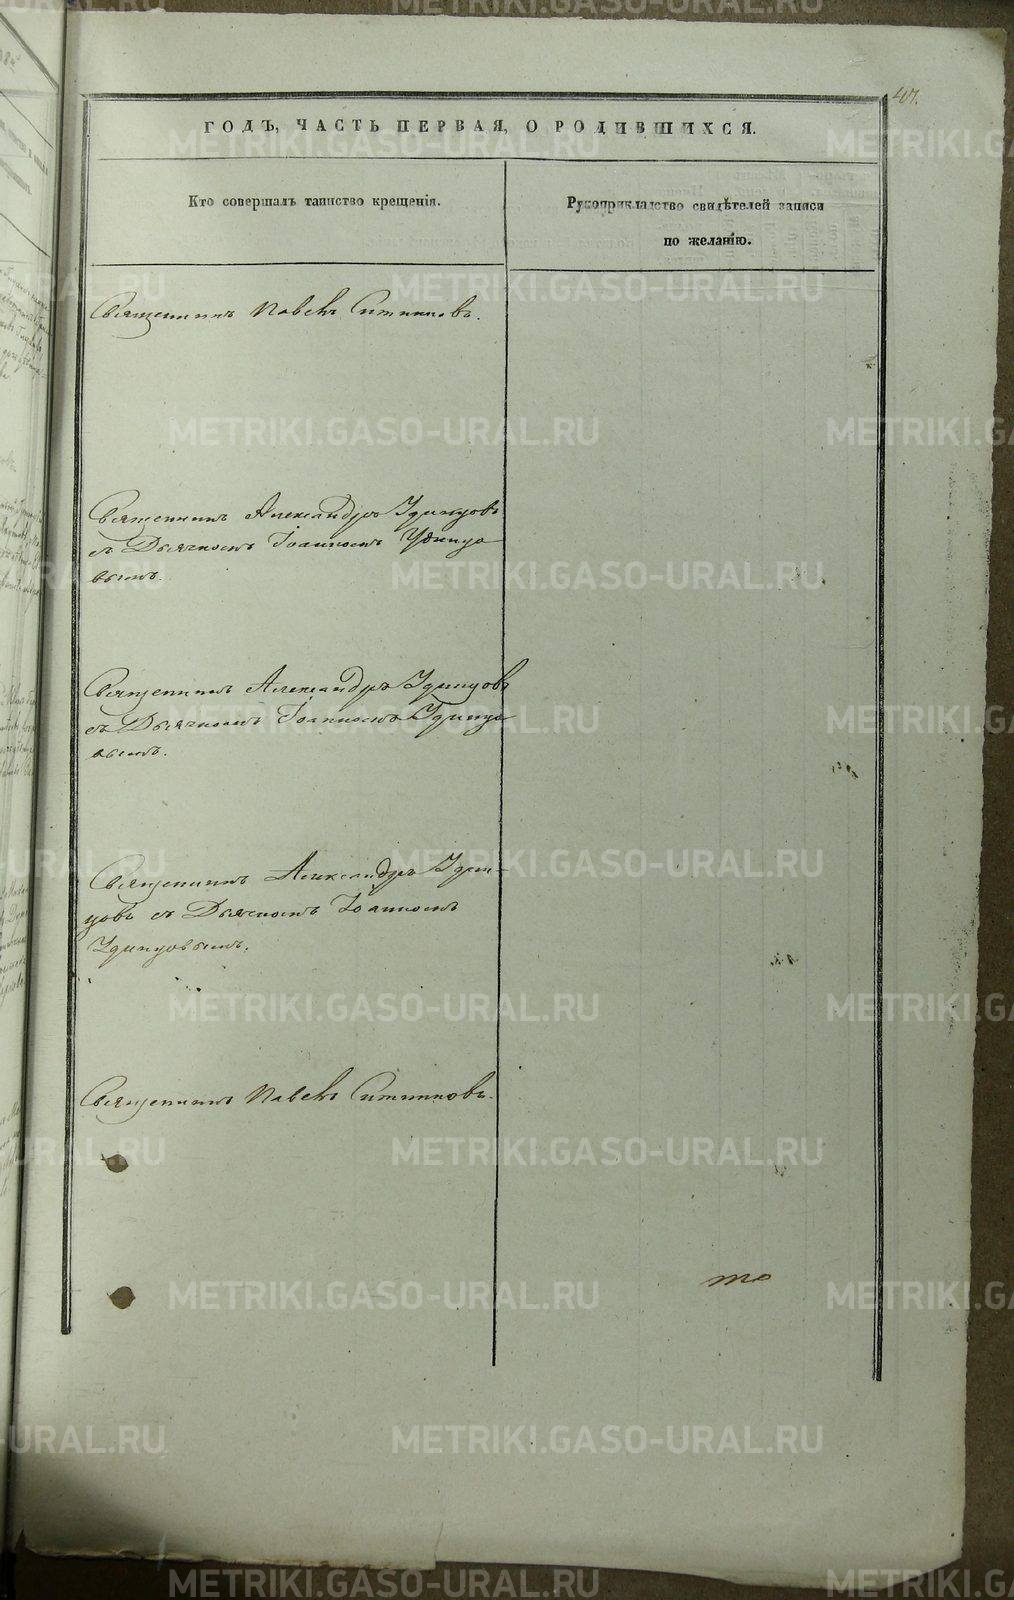 47.
ГОДЪ, ЧАСТЬ ПЕРВАЯ, О РОДИВШИХСЯ.
Кто совершалъ таинство крещенія.
Рукоприкладство свидѣтелей записи
по желанію.
Священникъ Павелъ Ситниковъ.
Священникъ Александръ Удинцовъ
съ Дьячкомъ Іоанномъ Удинцо
вымъ.
Священникъ Александръ Удинцовъ
съ Дьячкомъ Іоанномъ Удинцо
вымъ.
Священникъ Александръ Удин-
цовъ съ Дьячкомъ Іоанномъ
Удинцовымъ.
Священникъ Павелъ Ситниковъ.
METRIKI.GASO-URAL.RU